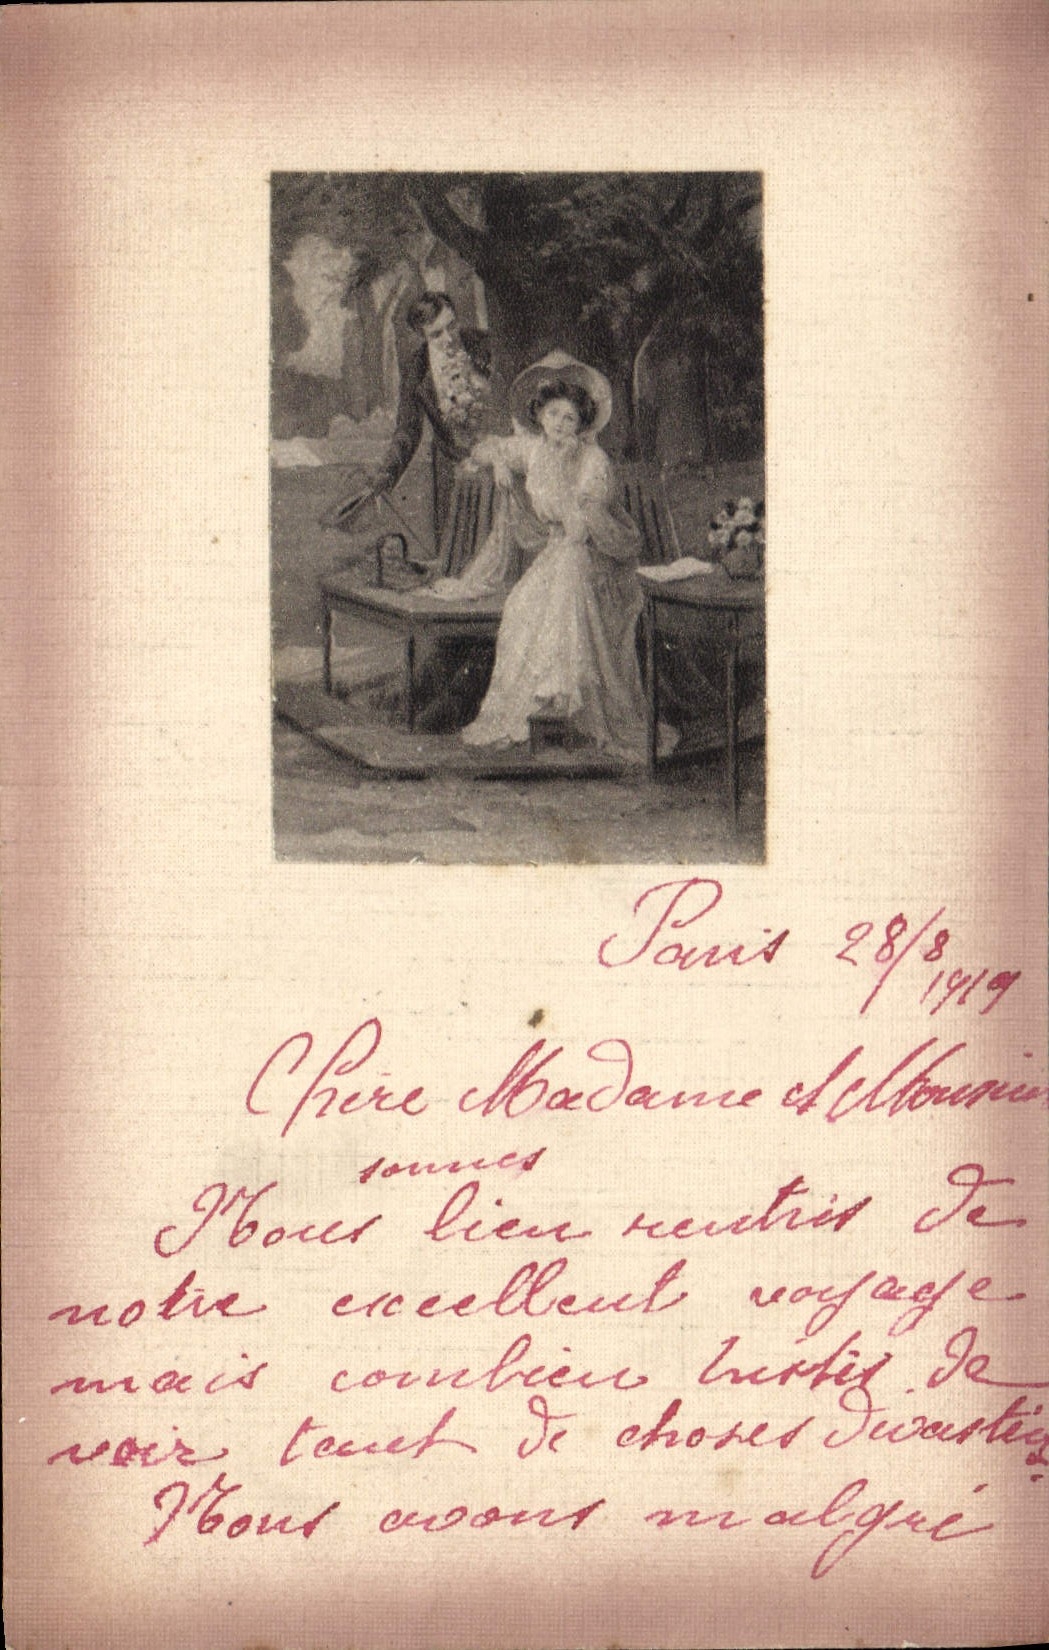 Paris 28/8
1919
Chère Madame et Monsieur
sommes
Nous bien rentrés de
notre excellent voyage
mais combien tristes de
voir tant de choses dévastées
Nous avons malgré